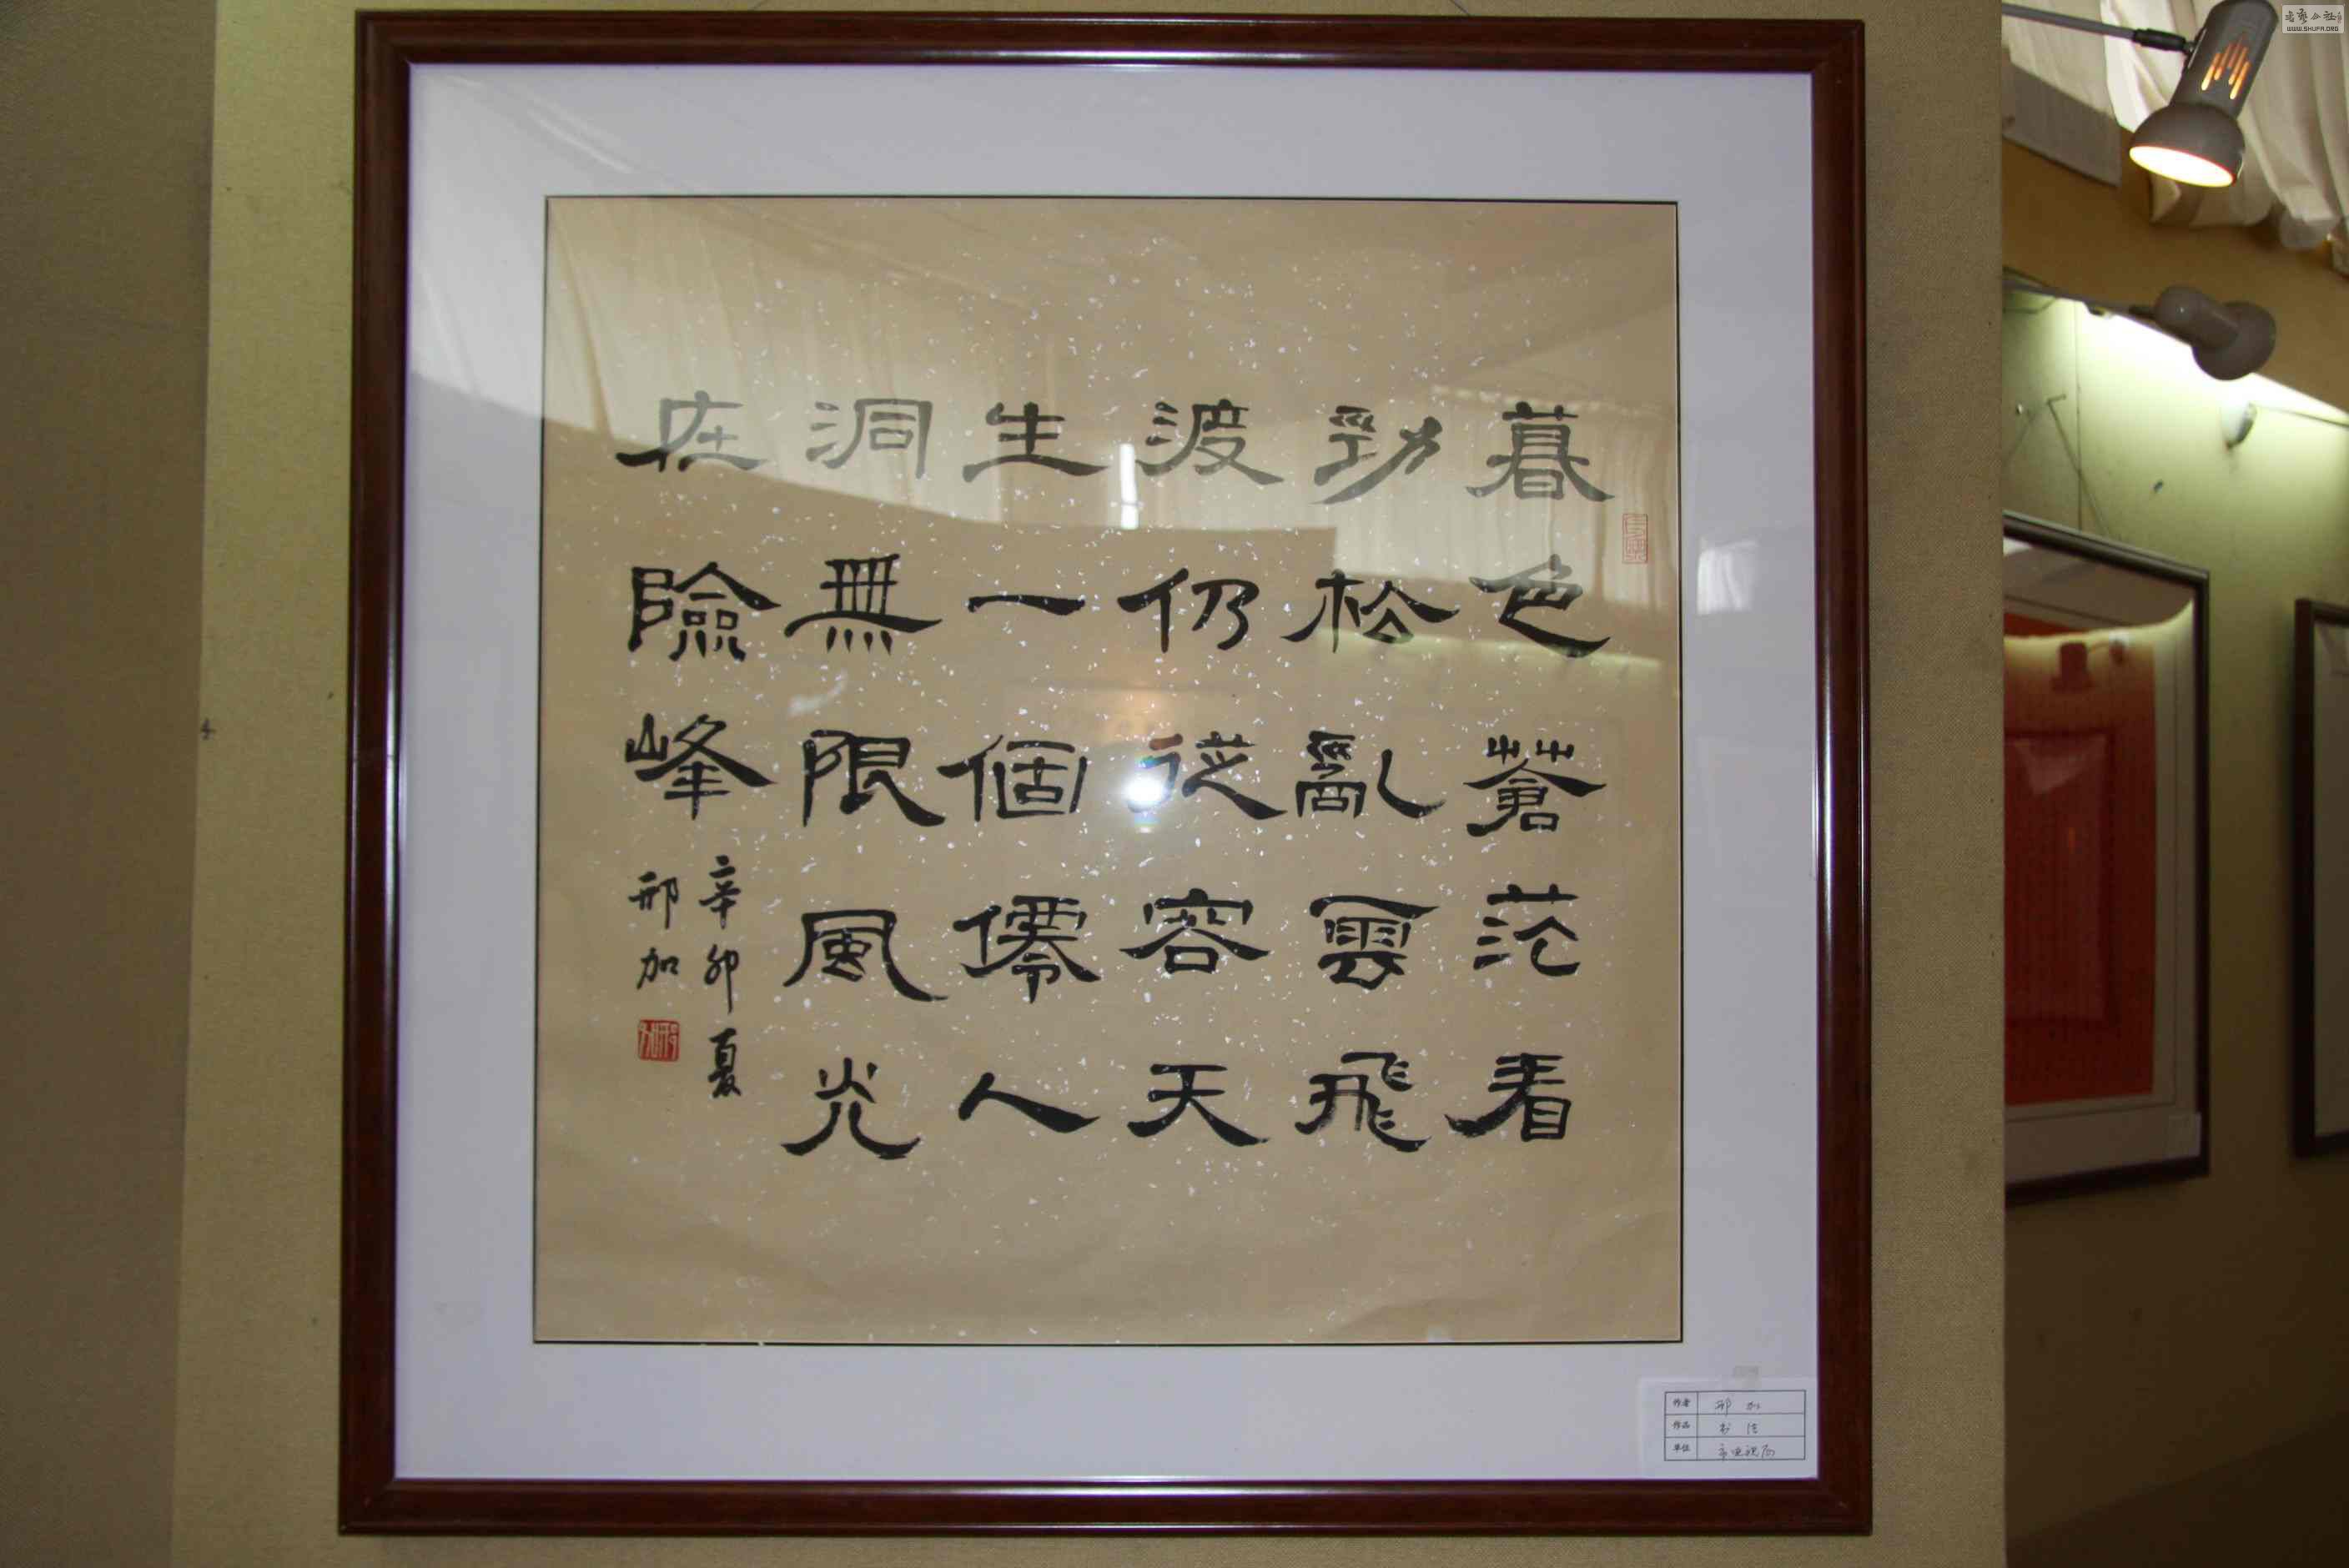 暮色蒼茫看
勁松亂雲飛
渡仍從容天
生一個僊人
洞無限風光
在險峰
辛卯夏
邢加
作者 邢加
作品 书法
单位
书艺公社
WWW.SHUFA.ORG